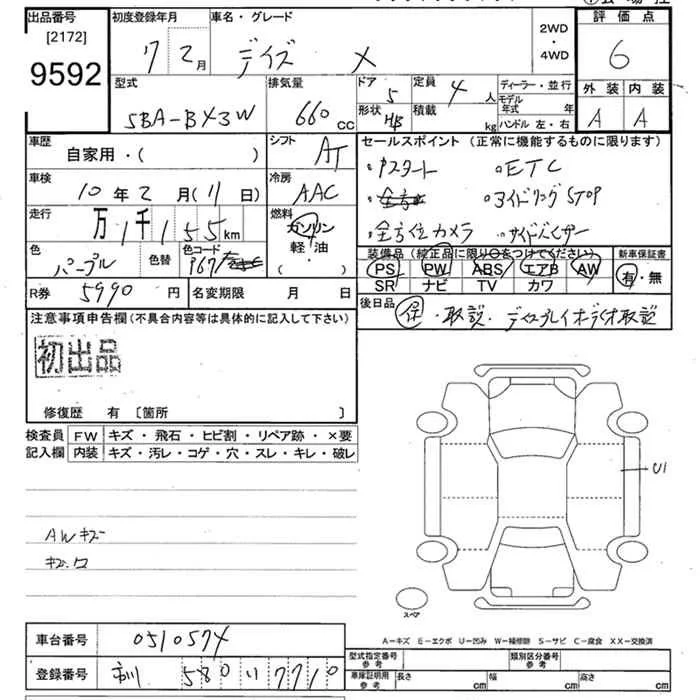 出品番号
[2172]
9592
初度登録年月
7 2月
車名・グレード
デイズ X
2WD
・
4WD
評価点
6
外装 内装
A A
型式
5BA-B43W
排気量
660 CC
ドア
5
形状
HB
定員
4人
積載
kg
ディーラー・並行
モデル年式 年
ハンドル 左・右
車歴
自家用・( )
シフト
AT
車検
10年2月(11日)
冷房
AAC
走行
万1千155km
燃料
ガソリン
軽・油
・( )
色
パープル
色替
色コード
R券 5990円
名変期限 月 日
セールスポイント (正常に機能するものに限ります)
・Pスタート ・ETC
・アイドリングSTOP
・全方位カメラ ・サイドバイザー
装備品 (純正品に限り○をつけてください)
PS PW ABS エアB AW
SR ナビ TV カワ
新車保証書
有・無
後日品
保・取説・ディスプレイオーディオ取説
注意事項申告欄(不具合内容等は具体的に記入して下さい)
初出品
修復歴 有 〔箇所 〕
検査員記入欄
FW キズ・飛石・ヒビ割・リペア跡・×要
内装 キズ・汚レ・コゲ・穴・スレ・キレ・破レ
AWキズ
U1
スペア
A−キズ E−エクボ U−凹み W−補修跡 S−サビ C−腐食 XX−交換済
車台番号 0510574
登録番号 580 い 7710
型式指定番号 参考
類別区分番号 参考
車庫証明用 参考
長さ cm 幅 cm 高さ cm